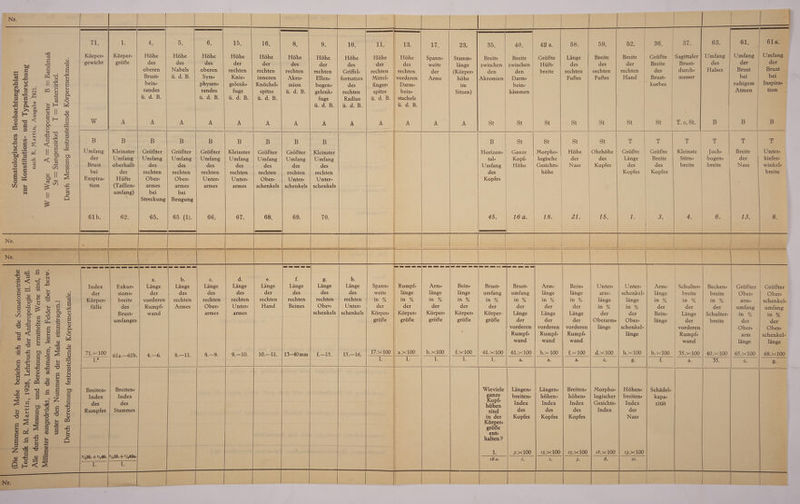 Nr.
Somatologisches Beobachtungsblatt
zur Konstitutions- und Typenforschung
nach R. Martin, Ausgabe 1925.
W = Wage A = Anthropometer B = Bandmaß
St = Stangenzirkel T = Tasterzirkel.
Durch Messung festzustellende Körpermerkmale.
71. 1. 4. 5. 6. 15. 16. 8. 9. 10. 11. 13. 17. 23. 35. 40. 42 a. 58. 59. 52. 36. 37. 63. 61. 61 a.
Körpergewicht
Körpergröße
Höhe des oberen Brustbeinrandes ü. d. B.
Höhe des Nabels ü. d. B.
Höhe des oberen Symphysenrandes ü. d. B.
Höhe der rechten Kniegelenksfuge ü. d. B.
Höhe der rechten inneren Knöchelspitze ü. d. B.
Höhe des rechten Akromion ü. d. B.
Höhe der rechten Ellenbogengelenksfuge ü. d. B.
Höhe des Griffelfortsatzes des rechten Radius ü. d. B.
Höhe der rechten Mittelfingerspitze ü. d. B.
Höhe des rechten vorderen Darmbeinstachels ü. d. B.
Spannweite der Arme
Stammlänge (Körperhöhe im Sitzen)
Breite zwischen den Akromien
Breite zwischen den Darmbeinkämmen
Größte Hüftbreite
Länge des rechten Fußes
Breite des rechten Fußes
Breite der rechten Hand
Größte Breite des Brustkorbes
Sagittaler Brustdurchmesser
Umfang des Halses
Umfang der Brust bei ruhigem Atmen
Umfang der Brust bei Inspiration
W A A A A A A A A A A A A A St St St St St St St T. o. St. B B B
B B B B B B B B B B St St St St T T T T T T
Umfang der Brust bei Exspiration
Kleinster Umfang oberhalb der Hüfte (Taillenumfang)
Größter Umfang des rechten Oberarmes bei Streckung
Größter Umfang des rechten Oberarmes bei Beugung
Größter Umfang des rechten Unterarmes
Kleinster Umfang des rechten Unterarmes
Größter Umfang des rechten Oberschenkels
Größter Umfang des rechten Unterschenkels
Kleinster Umfang des rechten Unterschenkels
Horizontal-Umfang des Kopfes
Ganze Kopf-Höhe
Morphologische Gesichtshöhe
Höhe der Nase
Ohrhöhe des Kopfes
Größte Länge des Kopfes
Größte Breite des Kopfes
Kleinste Stirnbreite
Jochbogenbreite
Breite der Nase
Unterkieferwinkelbreite
61 b. 62. 65. 65 (1). 66. 67. 68. 69. 70. 45. 16 a. 18. 21. 15. 1. 3. 4. 6. 13. 8.
Nr.
Nr.
(Die Nummern der Maße beziehen sich auf die Somatometrische
Technik in R. Martin, 1928, Lehrbuch der Anthropologie II. Aufl.
Alle durch Messung und Berechnung ermittelten Werte sind, in
Millimeter ausgedrückt, in die schmalen, leeren Felder über bezw.
unter den Nummern der Maße einzutragen.)
Durch Berechnung festzustellende Körpermerkmale.
Index der Körperfülle
Exkursionsbreite des Brustumfanges
a. Länge der vorderen Rumpfwand
b. Länge des rechten Armes
c. Länge des rechten Oberarmes
d. Länge des rechten Unterarmes
e. Länge der rechten Hand
f. Länge des rechten Beines
g. Länge des rechten Oberschenkels
h. Länge des rechten Unterschenkels
Spannweite in % der Körpergröße
Rumpflänge in % der Körpergröße
Armlänge in % der Körpergröße
Beinlänge in % der Körpergröße
Brustumfang in % der Körpergröße
Brustumfang in % der Länge der vorderen Rumpfwand
Armlänge in % der Länge der vorderen Rumpfwand
Beinlänge in % der Länge der vorderen Rumpfwand
Unterarmlänge in % der Oberarmlänge
Unterschenkellänge in % der Oberschenkellänge
Armlänge in % der Beinlänge
Schulterbreite in % der Länge der vorderen Rumpfwand
Beckenbreite in % der Schulterbreite
Größter Oberarmumfang in % der Oberarmlänge
Größter Oberschenkelumfang in % der Oberschenkellänge
Breiten-Index des Rumpfes
Breiten-Index des Stammes
Wieviele ganze Kopfhöhen sind in der Körpergröße enthalten?
Längenbreiten-Index des Kopfes
Längenhöhen-Index des Kopfes
Breitenhöhen-Index des Kopfes
Morphologischer Gesichts-Index
Höhenbreiten-Index der Nase
Schädelkapazität
Nr.